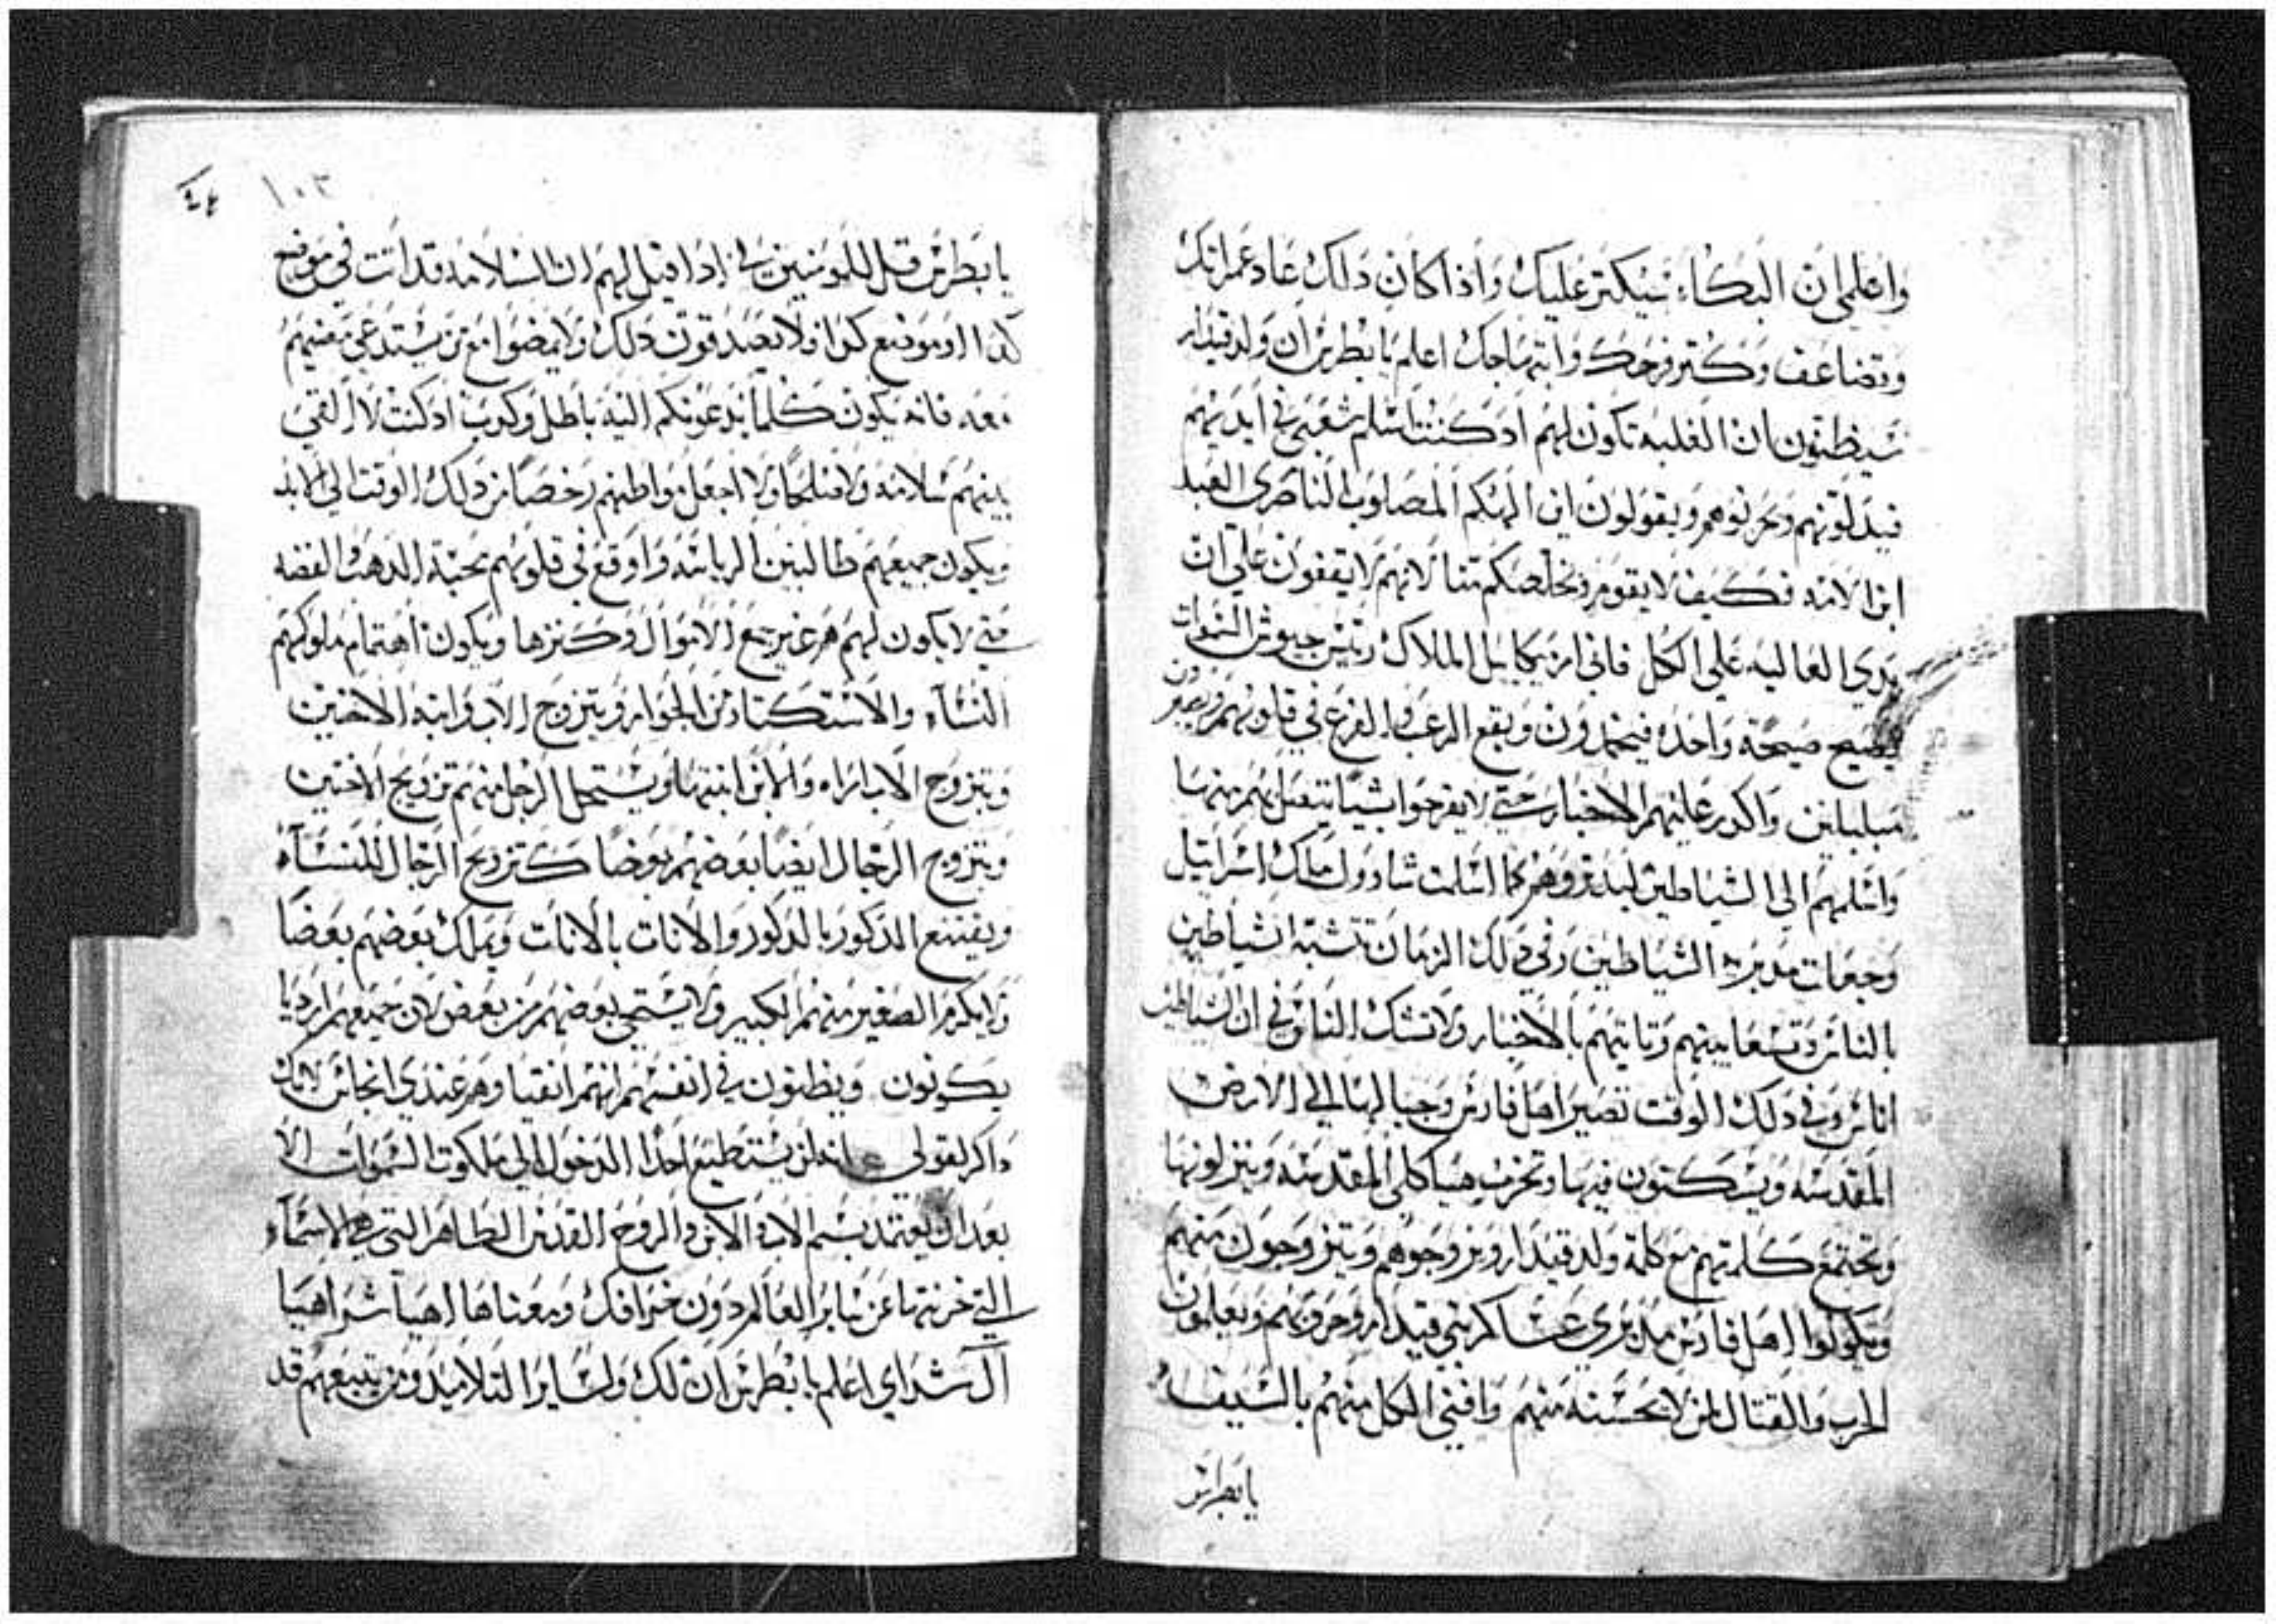 واعلمي ان البكاء سيكتر عليك واذا كان دلك عاد عمرانك
وتضاعف وكتر فرحك وابتهاجك اعلم يا بطرس ان ولد قيدار
سيظنون ان الغلبه تكون لهم اد كنت اسلم شعبي في ايديهم
فيدلونهم ويحزنوهم ويقولون اين الهكم المصلوب الناصرى العبد
ابن الامه فكيف لا يقوم ويخلصكم منا لانهم لا يقفون على ان
يدي العاليه على الكل فاني امر ميكاييل الملاك رييس جيوش السموات
يصيح صيحة واحده فيخمدون ويقع الرعب والفزع في قلوبهم ويصيرون
مبلبلين واكدر عليهم الاخبار حتى لا يفرحوا بشيا يتصل بهم منها
واسلمهم الى الشياطين ليدبروهم كما اسلمت شاوول ملك اسراييل
وجعلت مدبره الشياطين وفي دلك الزمان تتشبه الشياطين
بالناس وتسعا بينهم وتاتيهم بالاخبار ولا تشك الناس في ان الشياطين
اناس وفي دلك الوقت تصير اهل فارس وجبالها الى الارض
المقدسه ويسكنون فيها وتخرب هياكلي المقدسه وينزلونها
وتجتمع كلمتهم مع كلمة ولد قيدار ويزوجوهم ويتزوجون منهم
ويكونوا اهل فارس مدبري عساكر بني قيدار وحروبهم ويعلمون
الحرب والقتال لمن لا يحسنه منهم وافني الكل منهم بالسيف
يا بطرس
١٠٣
يا بطرس قل للمومنين بي إدا قيل لهم ان السلامه قد اتت في موضع
كدا او موضع كدا فلا يصدقون دلك ولا يمضوا مع من يستدعي مضيهم
معه فانه يكون كلما يدعونكم اليه باطل وكدب اد كنت لا القي
بينهم سلامه ولا صلحا ولا اجعل مواطنهم رخصا من دلك الوقت الى الابد
ويكون جميعهم طالبين الرياسه واوقع في قلوبهم محبة الدهب والفضه
حتى لا يكون لهم هم غير جمع الاموال وكنزها ويكون اهتمام ملوكهم
النساء والاستكتار من الجوار ويتزوج الاب وابنه الاختين
ويتزوج الاب امراه والابن ابنتها ويستحل الرجل منهم تزويج الاختين
ويتزوج الرجال ايضا بعضهم بعضا كتزويج الرجال للنساء
ويقتنع الدكور بالدكور والانات بالانات ويملك بعضهم بعضا
ولا يكرم الصغير منهم الكبير ولا يستحي بعضهم من بعض لان جميعهم ارديا
يكونون ويظنون في انفسهم انهم انقيا وهم عندي انجاس لانك
داكر لقولي انه لن يستطيع احدا الدخول الى ملكوت السموات الا
بعد ان يعتمد بسم الاب والابن والروح القدس الطاهر التي هي الاسماء
التي خزنتها عن ساير العالم دون خرافك ومعناها اهيا شراهيا
ال شداي اعلم يا بطرس ان لك ولساير التلاميد ومن يتبعهم قد